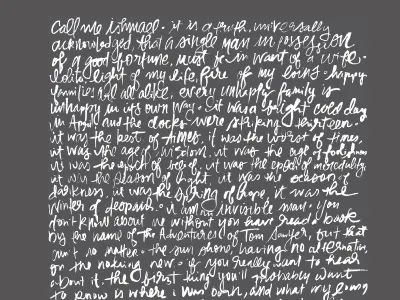 Call me Ishmael. it is a truth, universally
acknowledged, that a single man in possession
of a good fortune, must be in want of a wife.
lolita, light of my life, fire of my loins. happy
families are all alike, every unhappy family is
unhappy in its own way. it was a bright cold day
in April, and the clocks were striking thirteen.
it was the best of times, it was the worst of times,
it was the age of wisdom, it was the age of foolishness
it was the epoch of belief, it was the epoch of incredulity,
it was the season of light, it was the season of
darkness, it was the spring of hope, it was the
winter of despair. i am an invisible man. you
don't know about me without you have read a book
by the name of The Adventures of Tom Sawyer, but that
ain't no matter. the sun shone, having no alternative
on the nothing new. if you really want to hear
about it, the first thing you'll probably want
to know is where i was born, and what my lousy